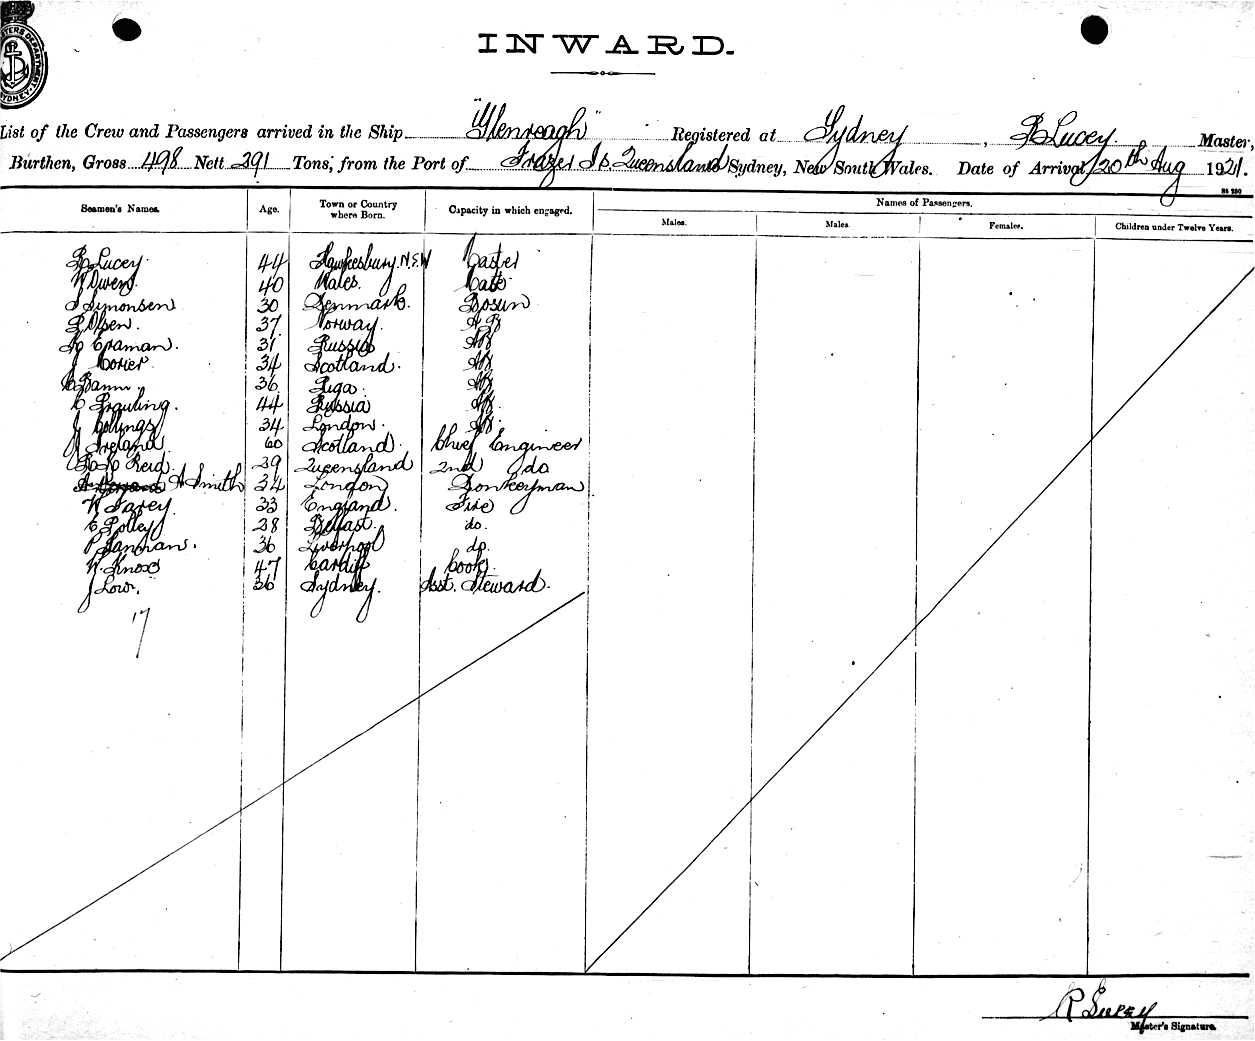 INWARD.
List of the Crew and Passengers arrived in the Ship "Glenreagh" Registered at Sydney, R Lucey. Master,
Burthen, Gross 498 Nett 291 Tons, from the Port of Frazer Is. Queensland Sydney, New South Wales. Date of Arrival, 20th Aug 1921.
Seamen's Names. Age. Town or Country where Born. Capacity in which engaged. Names of Passengers.
Males. Males. Females. Children under Twelve Years.
R Lucey 44 Hawkesbury. N.S.W Master
W Owens 40 Wales. Mate
S Simonsen 30 Denmark. Bosun
Olsen. 37 Norway. AB
31 Russia AB
J 34 Scotland. AB
36 Riga. AB
44 Russia AB
J Collings 34 London. AB
J Ireland 60 Scotland. Chief Engineer
Reid. 29 Queensland 2nd do
A Smith 34 London Donkeyman
W Farey. 33 England. Fire
E Polley 28 Belfast. do.
P 36 Liverpool do.
W. Knox 47 Cardiff Cook.
J Low. 36 Sydney. Asst. Steward.
17
R Lucey
Master's Signature.